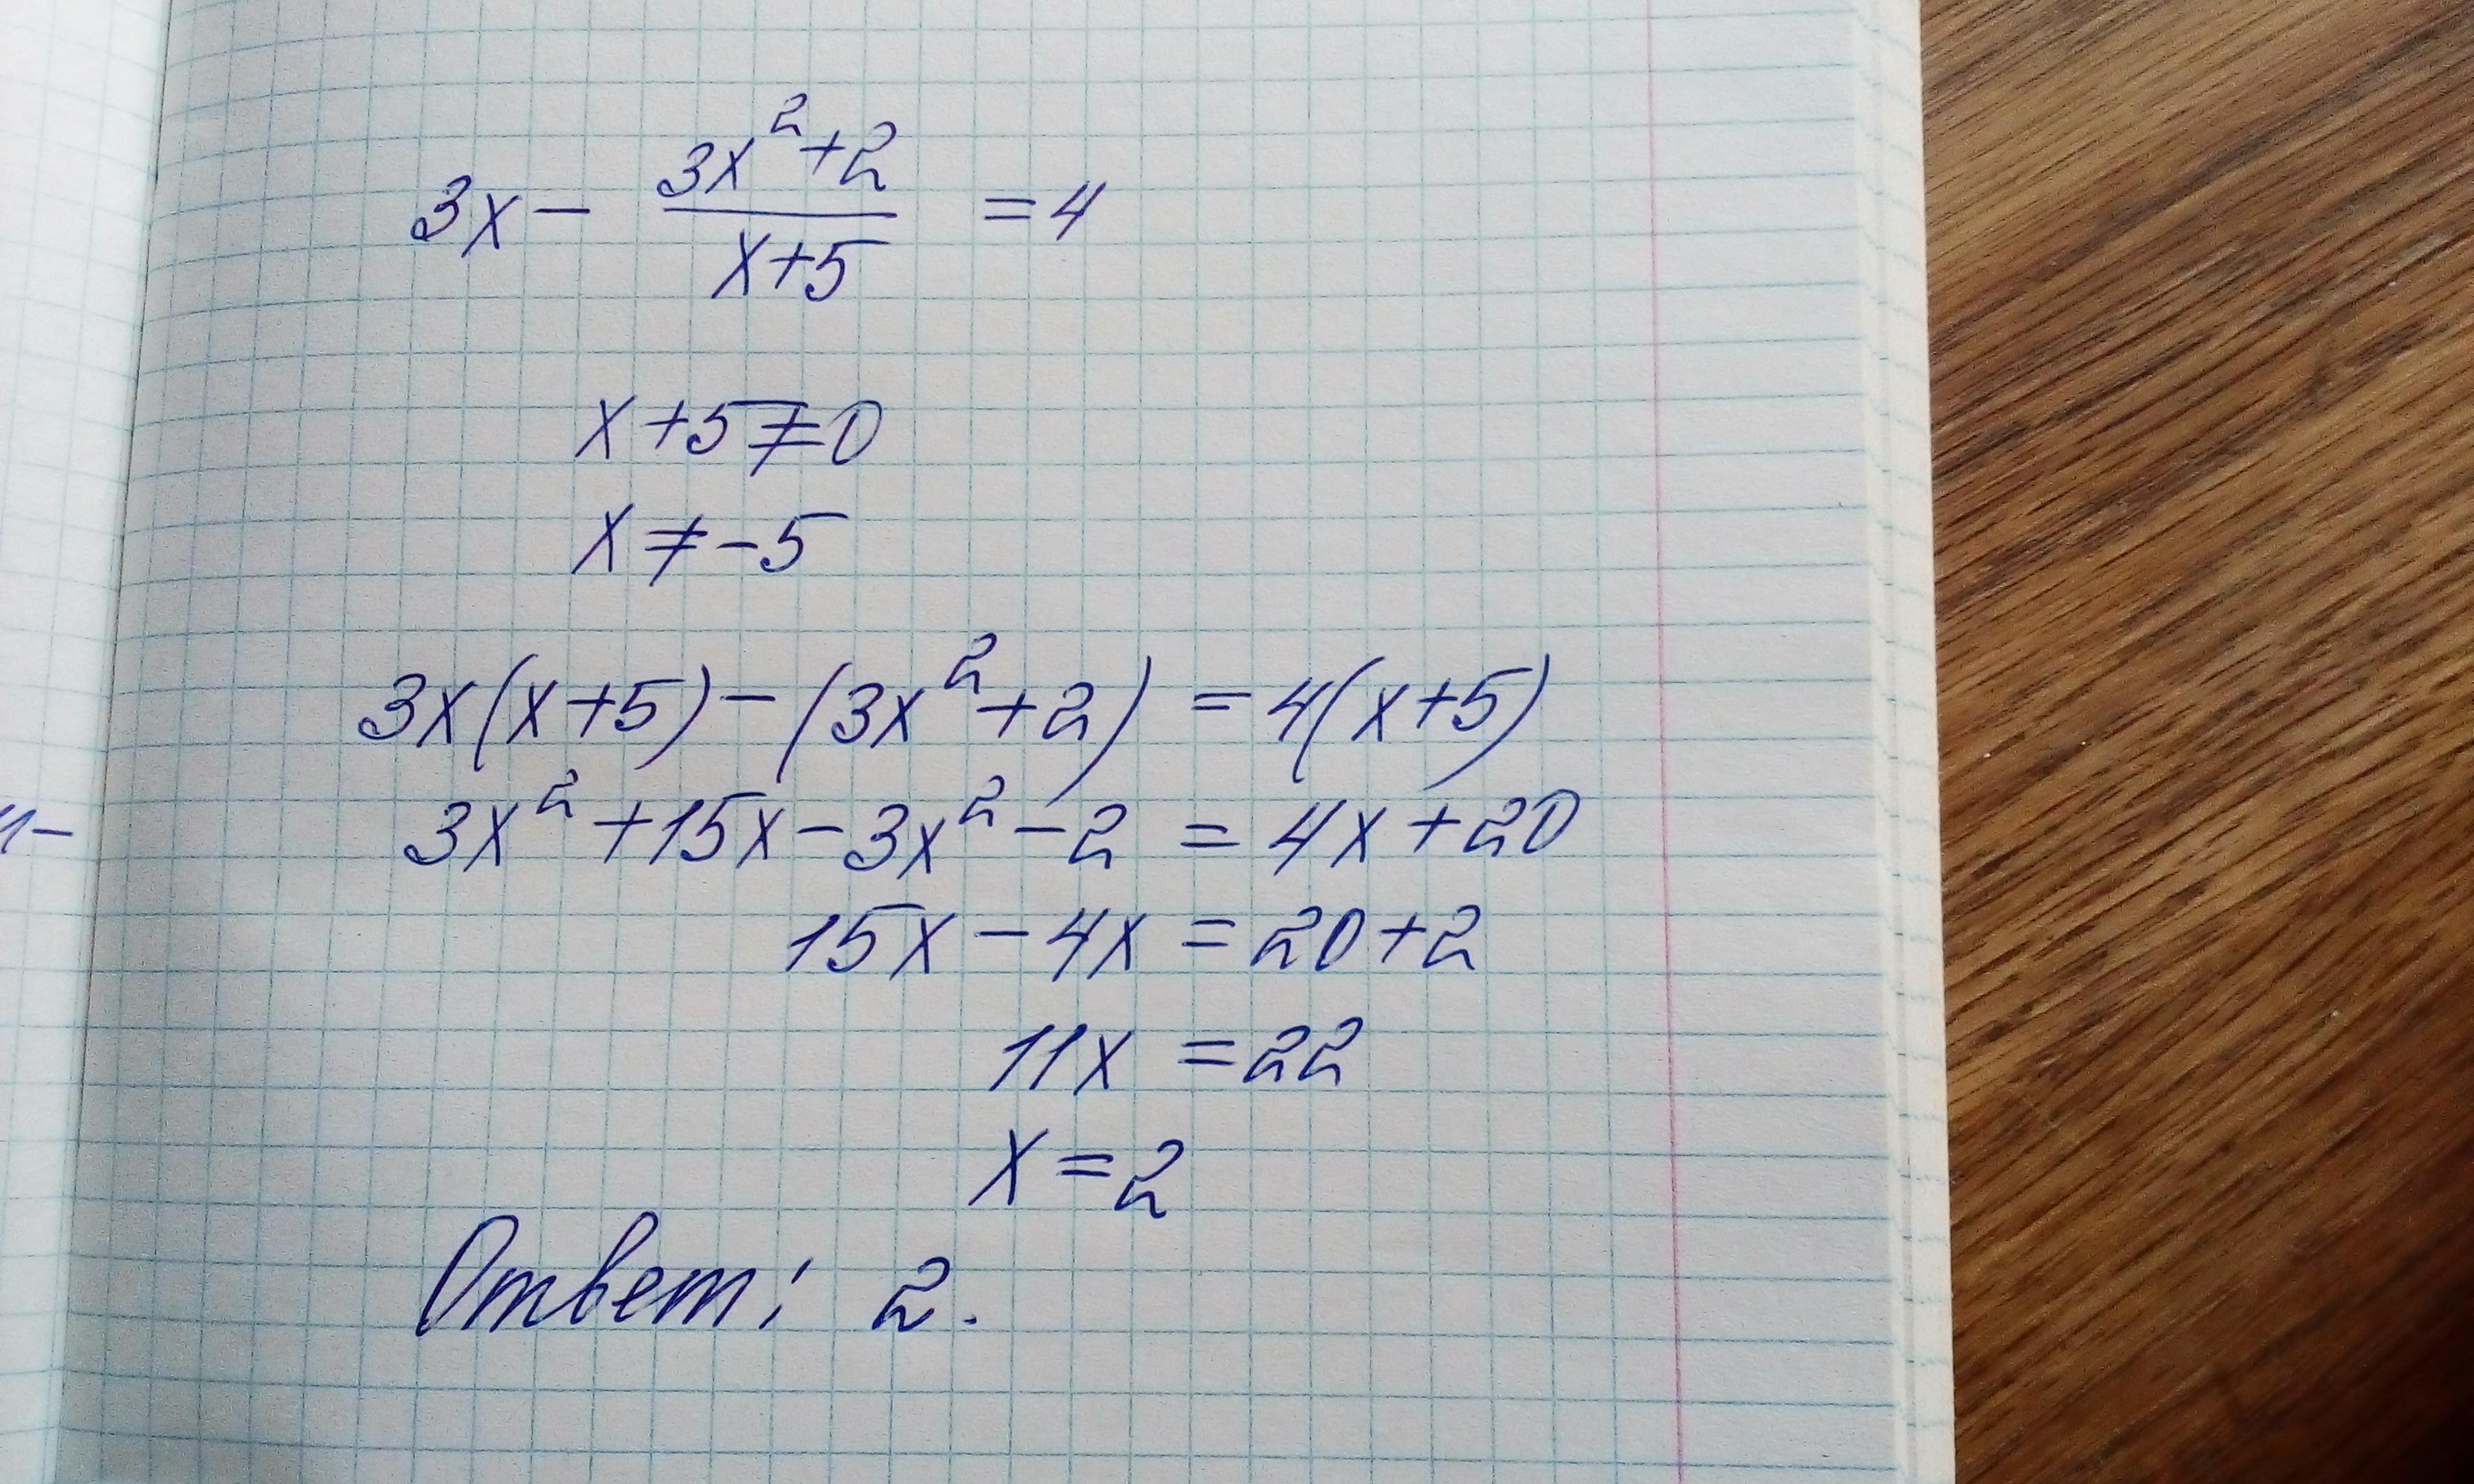 3x - \frac{3x^2+2}{x+5} = 4
x+5≠0
x≠-5
3x(x+5)-(3x²+2) = 4(x+5)
3x²+15x-3x²-2 = 4x+20
15x-4x = 20+2
11x = 22
x=2
Ответ: 2.